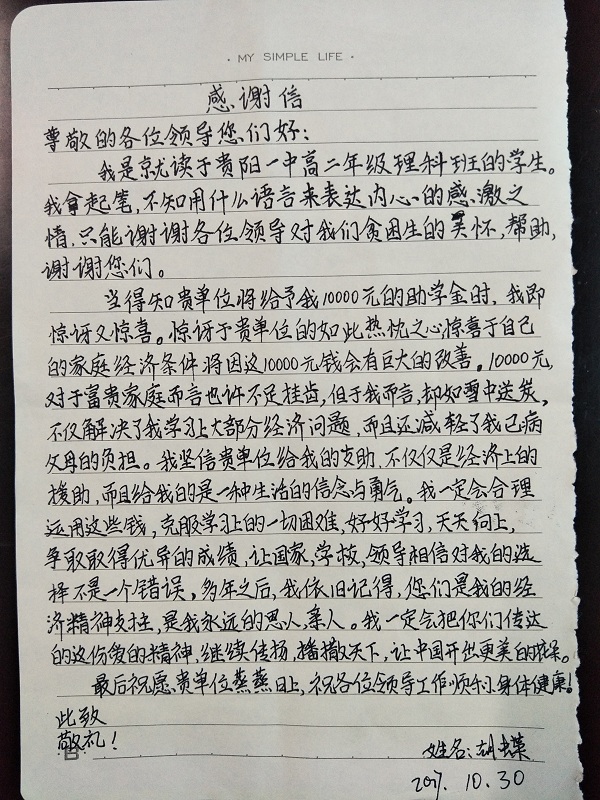 · MY SIMPLE LIFE ·
感谢信
尊敬的各位领导您们好:
我是就读于贵阳一中高二年级理科班的学生。
我拿起笔,不知用什么语言来表达内心的感激之
情,只能谢谢各位领导对我们贫困生的关怀,帮助,
谢谢您们。
当得知贵单位将给予我10000元的助学金时,我即
惊讶又惊喜。惊讶于贵单位的如此热忱之心惊喜于自己
的家庭经济条件将因这10000元钱会有巨大的改善。10000元,
对于富贵家庭而言也许不足挂齿,但于我而言,却如雪中送炭,
不仅解决了我学习上大部分经济问题,而且还减轻了我已病
父母的负担。我坚信贵单位给我的支助,不仅仅是经济上的
援助,而且给我的是一种生活的信念与勇气。我一定会合理
运用这些钱,克服学习上的一切困难,好好学习,天天向上,
争取取得优异的成绩,让国家,学校,领导相信对我的选
择不是一个错误。多年之后,我依旧记得,您们是我的经
济精神支柱,是我永远的恩人,亲人。我一定会把你们传达
的这份爱的精神,继续传扬,播撒天下,让中国开出更美的花朵。
最后祝愿贵单位蒸蒸日上,祝各位领导工作顺利身体健康!
此致
敬礼!
B
姓名:胡蝶
2017. 10. 30